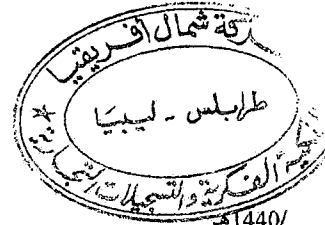 ركة شمال أفريقيا
طرابلس - ليبيا
الفكرية والتسجيلات التجارية
1440/